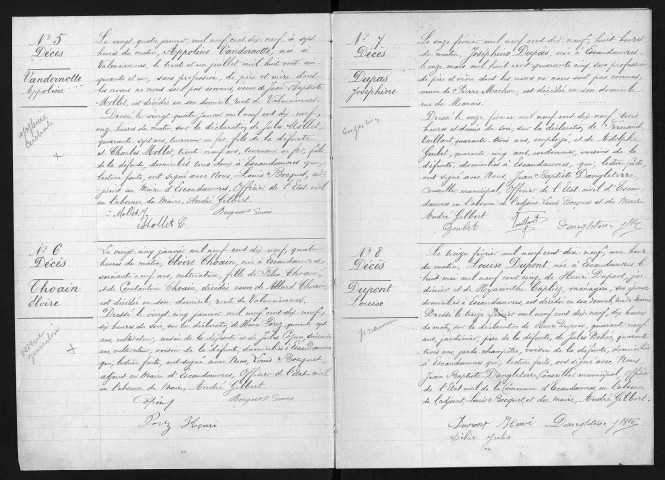 N° 5
Décès
Vandernotte
Appoline
Le vingt quatre janvier mil neuf cent dix neuf, à sept
heures du matin, Appoline Vandernotte, née à
Valenciennes, le trente et un juillet mil huit cent
quarante et un, sans profession, de père et mère dont
les noms ne nous sont pas connus, veuve de Jean Baptiste
Mollet, est décédée en son domicile, route de Valenciennes.
Dressé le vingt quatre janvier mil neuf cent dix neuf,
onze heures du matin sur la déclaration de Jules Mollet,
quarante sept ans, tourneur en fer, fils de la défunte
et Charles Mollet, trente neuf ans, tourneur en fer, fils
de la défunte, domiciliés tous deux à Escaudœuvres qui,
lecture faite, ont signé avec Nous, Louis Bocquet, ad-
joint au Maire d'Escaudœuvres, Officier de l'état civil
en l'absence du Maire, André Gilbert.
Mollet J
Mollet C
N° 6
Décès
Choain
Eloire
Le vingt cinq janvier mil neuf cent dix neuf, quatre
heures du matin, Eloire Choain, née à Escaudœuvres
soixante neuf ans, cultivatrice, fille de Choain
et de Constantine Choain, décédés, veuve de Allard Choain
est décédée en son domicile, route de Valenciennes.
Dressé le vingt cinq janvier mil neuf cent dix neuf,
dix heures du soir, sur la déclaration de Henri Parez, quarante sept
ans, cultivateur, cousin de la défunte et de Jules
ans, cultivateur, voisin de la défunte, domiciliés à Escaudœuvres
qui, lecture faite, ont signé avec Nous, Louis Bocquet,
adjoint au Maire d'Escaudœuvres, Officier de l'état civil
en l'absence du Maire, André Gilbert.
Parez Henri
N° 7
Décès
Dupas
Joséphine
Le onze février mil neuf cent dix neuf, huit heures
du matin, Joséphine Dupas, née à Escaudœuvres
le onze mars mil huit cent quarante cinq, sans profession
de père et mère dont les noms ne nous sont pas connus,
veuve de Pierre Machon, est décédée en son domicile
rue du Marais.
Dressé le onze février mil neuf cent dix neuf, trois
heures et demie du soir, sur la déclaration de Fernand
Taillant, quarante trois ans, employé, et de Adolphe
Goubet, quarante cinq ans, cordonnier, voisins de la
défunte, domiciliés à Escaudœuvres, qui, lecture faite,
ont signé avec Nous Jean Baptiste Dangleterre,
Conseiller municipal, Officier de l'état civil d'Escau-
dœuvres en l'absence de l'adjoint Louis Bocquet et du Maire
André Gilbert
Goubet
Dangleterre JBte
N° 8
Décès
Dupont
Louise
Le treize février mil neuf cent dix neuf, une heure
du matin, Louise Dupont, née à Escaudœuvres le
mil neuf cent cinq, de Henri Dupont, jar-
dinier et de Hyacinthe Caplez, ménagère, ses époux
domiciliés à Escaudœuvres, est décédée en son domicile
Dressé le treize février mil neuf cent dix neuf, dix
heures du matin, sur la déclaration de Henri Dupont, quarante neuf
ans, jardinier, père de la défunte, de Jules
quarante trois ans, garde champêtre, voisin de la défunte, domiciliés
à Escaudœuvres qui, lecture faite, ont signé avec Nous,
Jean Baptiste Dangleterre, Conseiller municipal, Officier
de l'état civil de la Commune d'Escaudœuvres, en l'absence
de l'adjoint Louis Bocquet et du maire, André Gilbert.
Dupont Henri Dangleterre JBte
Jules